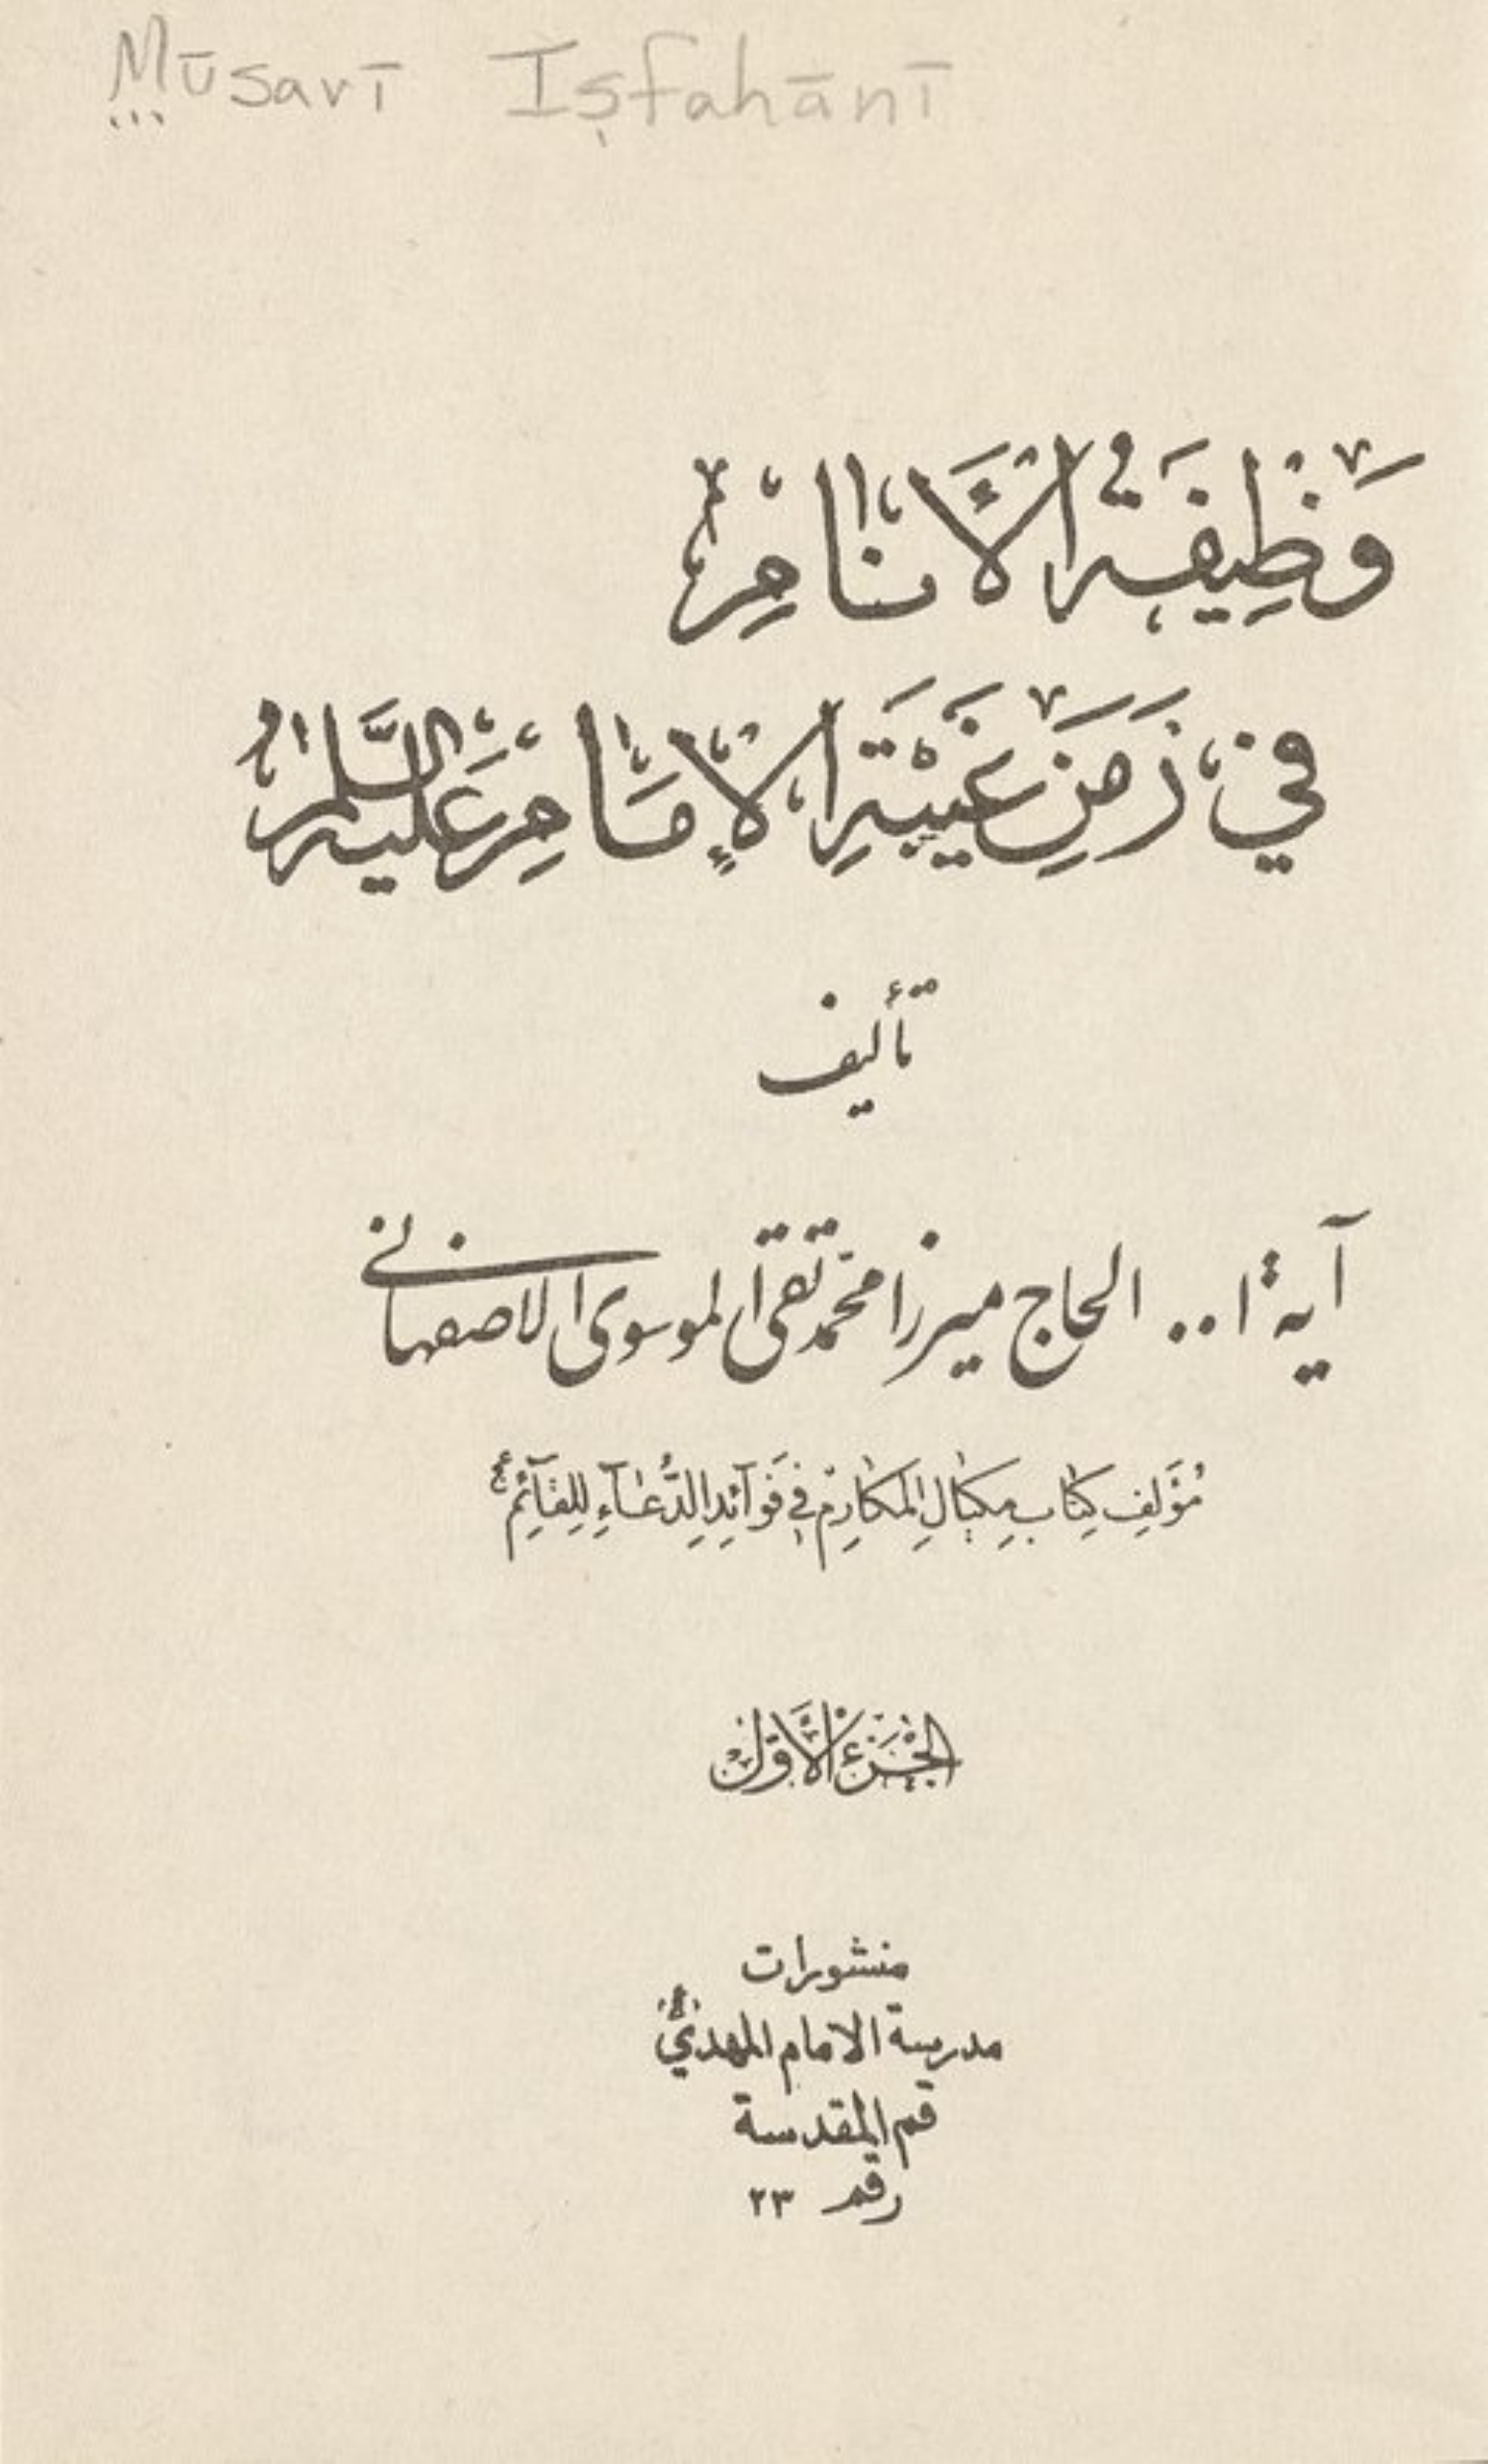 Mūsavī Iṣfahānī
وَظِيفَةُ الْأَنَامِ
فِي زَمَنِ غَيْبَةِ الْإِمَامِ عَلَيْهِ السَّلَام
تأليف
آية ا.. الحاج ميرزا محمد تقى الموسوى الاصفهانى
مُؤَلِفِ كِتَابِ مِكْيَالِ الْمَكَارِمِ فِي فَوَآئِدِ الدُّعَآءِ لِلْقَآئِمِ ع
الْجُزْءُ الْأَوَّلُ
منشورات
مدرسة الامام المهدي
قم المقدسة
رقم ٢٣